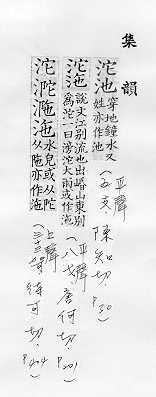 集韻
沱池 穿地鍾水又
姓亦作池
(平聲
五支, 陳知切, P30)
沱沲 說文江別流也出㟭山東別
為沱一曰滂沱大雨或作池
(平聲
八戈, 唐何切, P201)
沱 水皃或从陀
从陁亦作池
(上聲
三十三哿, 待可切, P404)